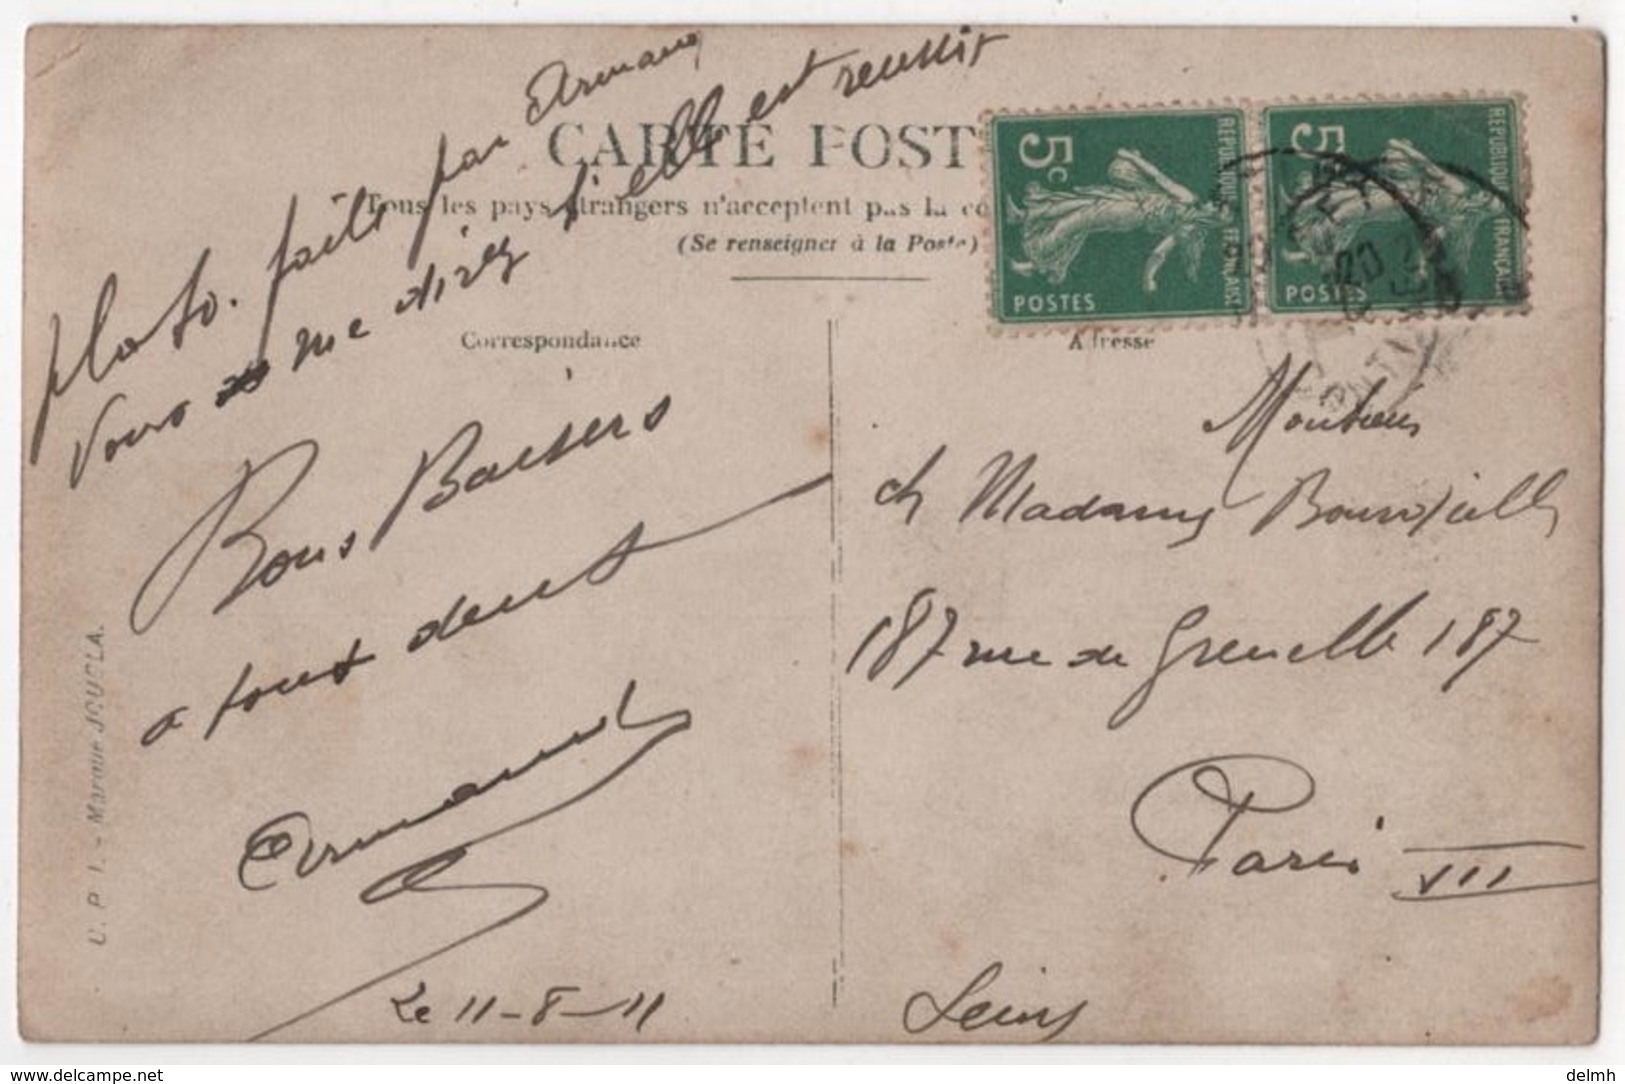 photo. fait par Armand
Vous me direz si elle est reussit
CARTE POST
Tous les pays étrangers n'acceptent pas la co
(Se renseigner à la Poste)
Correspondance
Bons Baisers
a tous deux
Armand
Le 11-8-11
U. P. I. - Marque JOUGLA.
5c
REPUBLIQUE FRANÇAISE
POSTES
5c
REPUBLIQUE FRANÇAISE
POSTES
Adresse
ch Madame
187 rue de Grenelle 187
Paris VII
Seine
delcampe.net
delmh